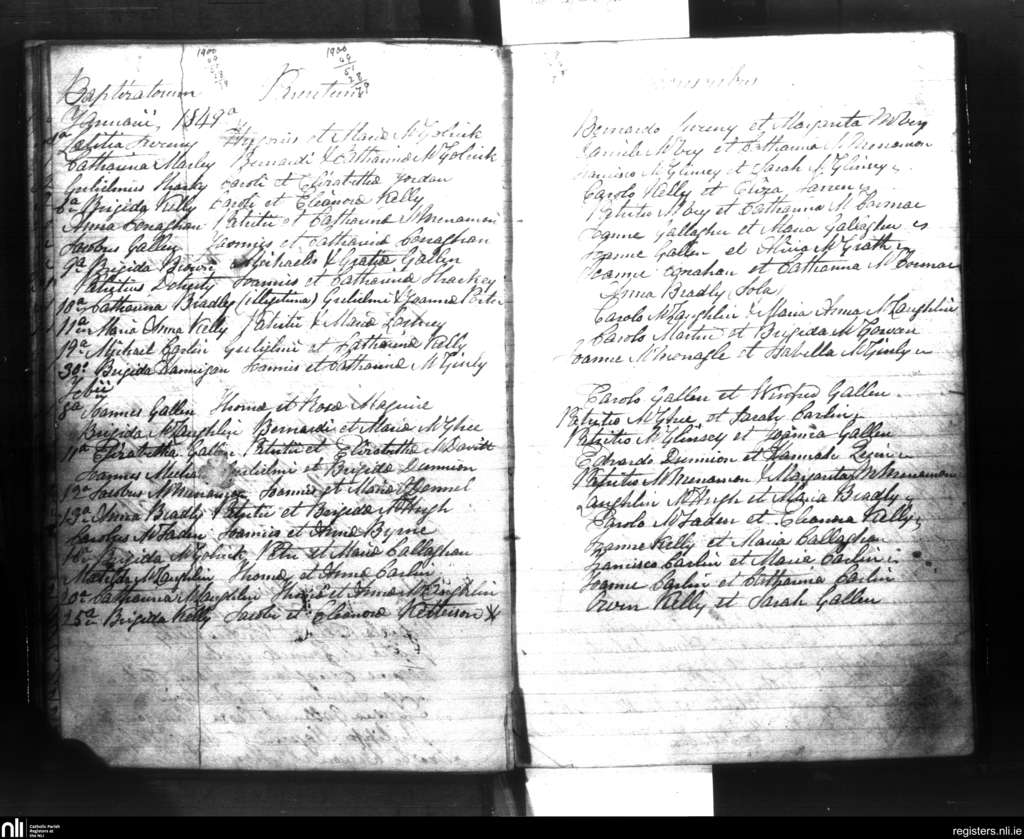 1900
49
51
28
23
1900
49
51
28
23
Baptizatorum Parentum
Januarii, 1849
Laetitia et Maria McGolrick
Catharina Marley Bernardi & Catharina McGolrick
Gulielmus Sharky Caroli et Elizabetha Jordan
8a Brigida Kelly Caroli et Eleanora Kelly
Anna Conaghan Patritii et Catharina McMenamin
Jacobus Gallen Joannis et Catharina Conaghan
9a Brigida Michaelis & Gratia Gallen
Patritius Doherty Joannis et Catharina Sharkey
10a Catharina Bradly (illegitima) Gulielmi & Joanna
11a Maria Anna Kelly Patritii & Maria
19a Michail Carlin Gulielmi et Catharina Kelly
30a Brigida Dannigan Joannis et Catharina McGinly
Febii
8a Joannes Gallen Thoma et Rosa Maguire
Brigida McLaughlin Bernardi et Maria McGhee
11a Elizabetha Gallen Patritii et Elizabetha McDavitt
Joannes Gulielmi et Brigida Dunnion
12a Jacobus McMenamin Joannis et Maria
13a Anna Bradly Patritii et Brigida McHugh
Carolus McFaden Joannis et Anna Byrne
18a Brigida McGolrick Petri et Maria Callaghan
Matilda McLaughlin Thoma et Anna Carlin
20a Catharina McLaughlin Thoma et Anna McLaughlin
25a Brigida Kelly Jacobi et Eleanora Patterson
Bernardo et Margarita McVey
Daniele McVey et Catharina McMenamon
Francisco McGlinsey et Sarah McGlinsey
Carolo Kelly et Eliza
Patritio McVey et Catharina McCormac
Joanne Gallagher et Maria Gallagher
Joanne Gallen et McGrath
Joanne et Catharina McCormac
Anna Bradly Sola
Carolo McLaughlin & Maria Anna McLaughlin
Carolo Martin et Brigida McGowan
Joanne McMonagle et Isabella McGinly
Carolo Gallen et Winifred Gallen
Patritio McGhee et Sarah Carlin
Patritio McGlinsey et Joanna Gallen
Edvardo Dunnion et Hannah
Patritio McMenamon & Margarita McMenamon
Laughlin McHugh et Maria Bradly
Carolo McFaden et Eleanora Kelly
Joanne Kelly et Maria Callaghan
Francisco Carlin et Maria Carlin
Joanne Carlin et Catharina Carlin
Owen Kelly et Sarah Gallen
nli
Catholic Parish
Registers at
the NLI
registers.nli.ie